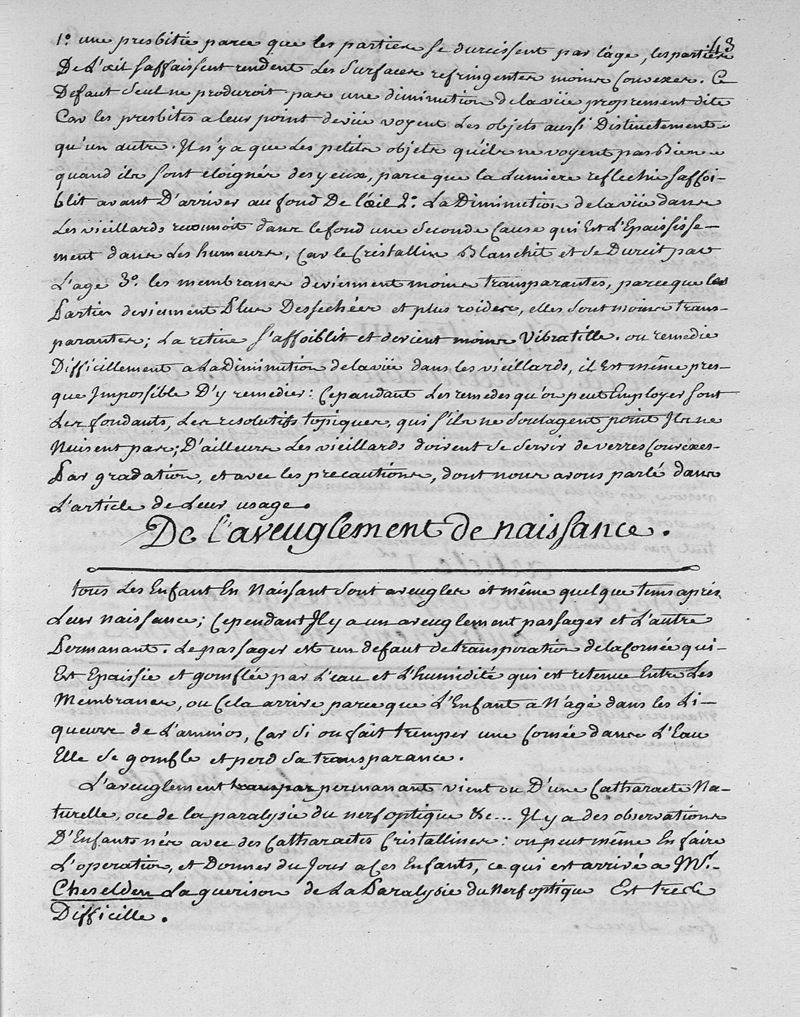 43
1.º une presbitie parce que les parties se durcissent par l'age, les parties
De L'œil s'affaissent rendent Les Surfaces refringentes moins Convexes. Ce
Defaut Seul ne produiroit pas une diminution de la viie proprement dite
Car les presbites a leur point de viie voyent Les objets aussi Distinctement
qu'un autre. Il n'y a que Les petits objets qu'ils ne voyent pas Bien
quand ils sont eloignés des yeux, parce que la Lumiere reflechie s'affoi-
blit avant D'arriver au fond De L'œil 2.º La Diminution de la viie dans
Les vieillards reconnoit dans le fond une Seconde Cause qui Est L'Epaississe-
ment dans Les humeurs, Car le Cristallin Blanchit et se Durcit par
L'age 3.º les membranes deviennent moins transparantes, parce que les
Parties deviennent Plus Dessechées et plus roides, elles sont moins trans-
parantes; La retine s'affoiblit et devient moins Vibratille. on remedie
Difficillement a La diminution de la viie dans les vieillards, il Est même pres-
que Impossible D'y remedier: Cependant Les remedes qu'on peut Employer sont
Les fondants, Les resolutifs topiques, qui s'ils ne Soulagent point Ils ne
Nuisent pas; D'ailleurs Les vieillards doivent se Servir de verres Convexes
Par gradation, et avec les precautions, dont nous avons parlé dans
L'article de Leur usage.
De l'aveuglement de naissance.
tous Les Enfant En Naissant sont aveugles et même quelque tems après
Leur naissance; Cependant Il y a un aveuglement passager et L'autre
Permanant. Le passager est un defaut de transporation de la Cornée qui
Est Epaissie et gonflée par L'eau et L'humidité qui est retenue Entre Les
Membranes, ou Cela arrive parce que L'Enfant a Nagé dans les Li-
queurs de L'amnios, Car si on fait tremper une Cornée dans L'Eau
Elle se gonfle et perd sa transparance.
L'aveuglement permanant vient ou D'une Catharacte Na-
turelle, ou de la paralysie du nerf optique &c... Il y a des observations
D'Enfants nés avec des Catharactes Cristallines: on peut même En faire
L'operation, et Donner du Jour a Ces Enfants, ce qui est arrivé a Mr.
Cheselden La guerison de La Paralysie du Nerf optique Est tres
Difficille.